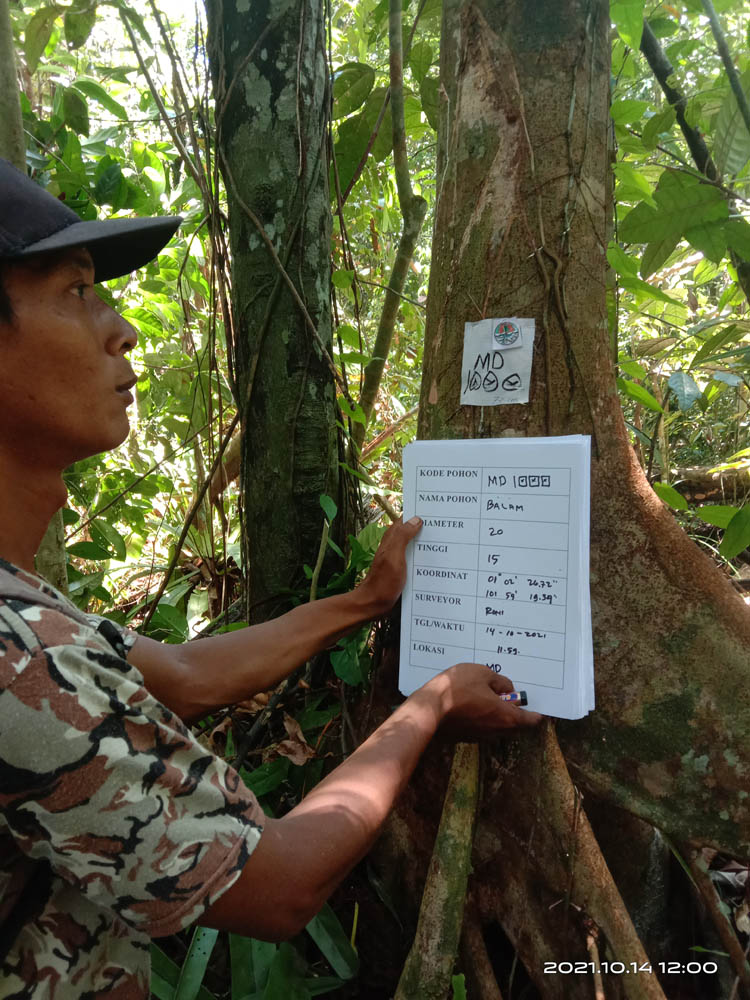 MD
1000
KODE POHON MD 1000
NAMA POHON BALAM
DIAMETER 20
TINGGI 15
KOORDINAT 01° 02' 26.72"
101 59' 19.59"
SURVEYOR
TGL/WAKTU 14-10-2021
11.59.
LOKASI MD
2021.10.14 12:00